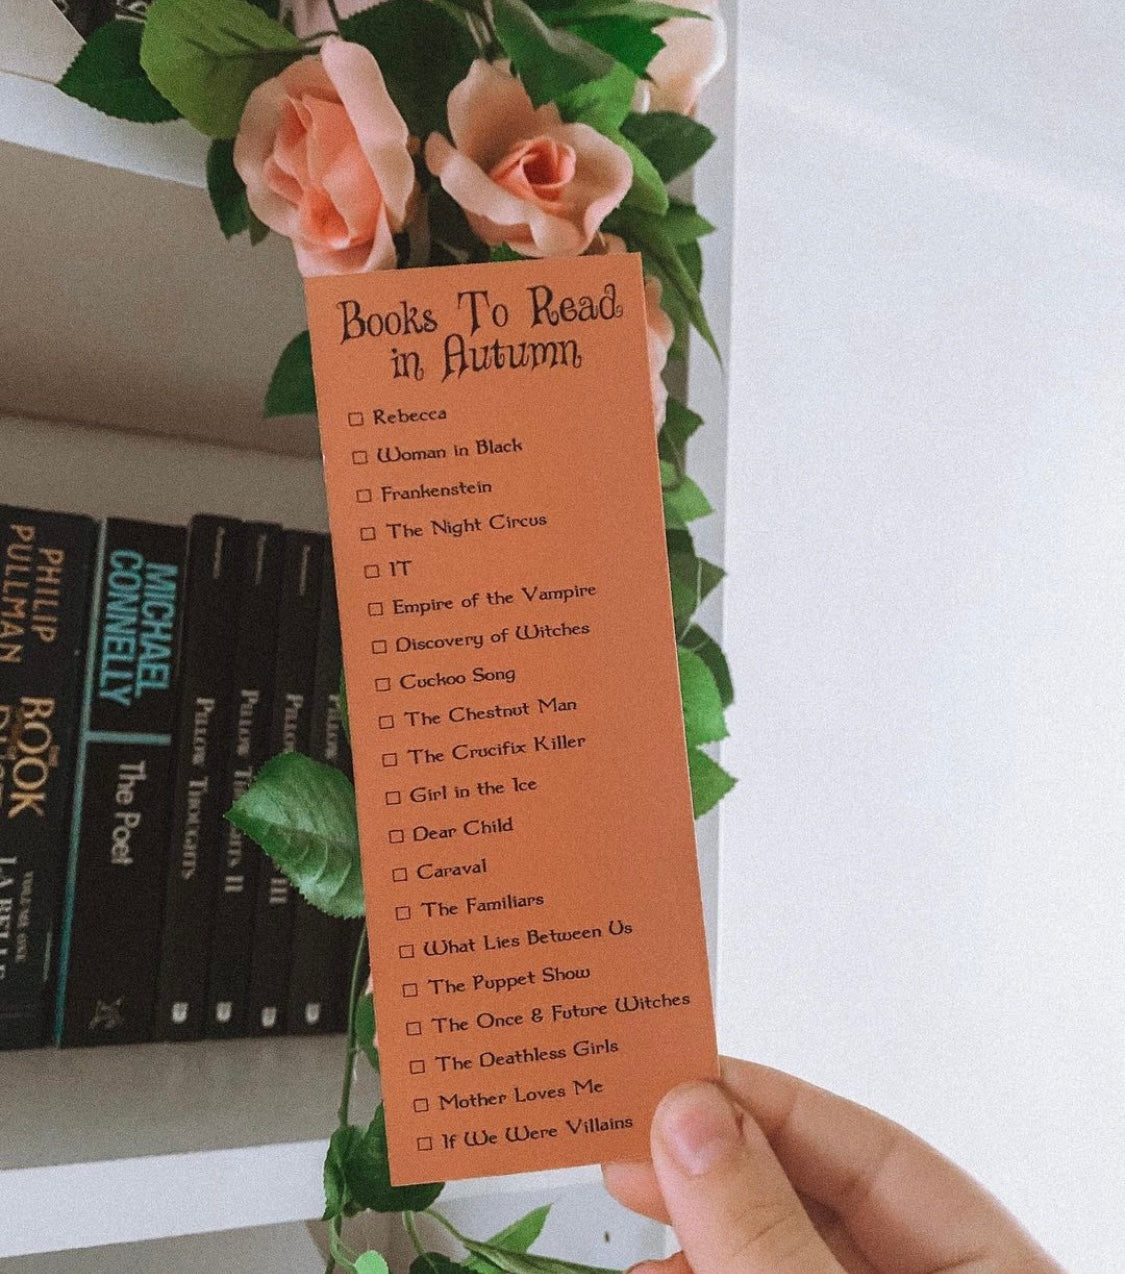 Books To Read
in Autumn
Rebecca
Woman in Black
Frankenstein
The Night Circus
IT
Empire of the Vampire
Discovery of Witches
Cuckoo Song
The Chestnut Man
The Crucifix Killer
Girl in the Ice
Dear Child
Caraval
The Familiars
What Lies Between Us
The Puppet Show
The Once & Future Witches
The Deathless Girls
Mother Loves Me
If We Were Villains
PHILIP
PULLMAN
BOOK
MICHAEL
CONNELLY
The Poet
PILLOW THOUGHTS
PILLOW
II
III